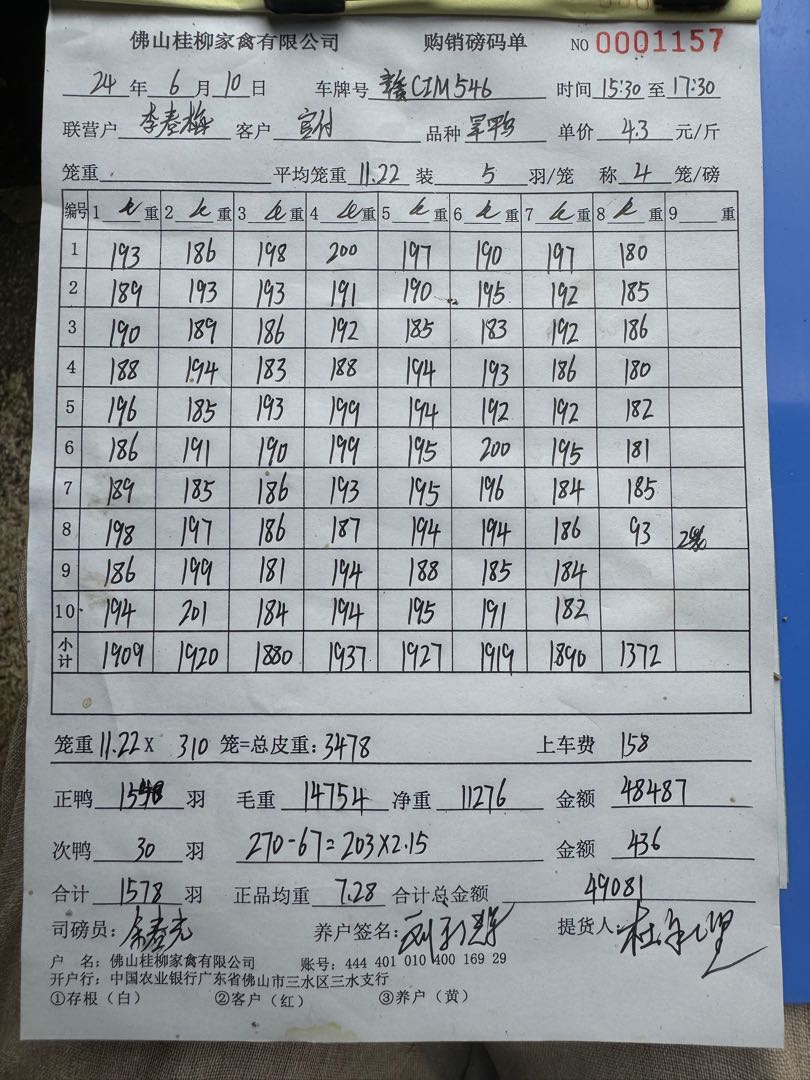 佛山桂柳家禽有限公司 购销磅码单 NO 0001157
24年6月10日 车牌号 赣CIM546 时间 15:30至17:30
联营户 李春梅 客户 宫付 品种 旱鸭 单价 4.3 元/斤
笼重 平均笼重 11.22 装 5 羽/笼 称 4 笼/磅
编号 1 重 2 重 3 重 4 重 5 重 6 重 7 重 8 重 9 重
1 193 186 198 200 197 190 197 180
2 189 193 193 191 190 195 192 185
3 190 189 186 192 185 183 192 186
4 188 194 183 188 194 193 186 180
5 196 185 193 199 194 192 192 182
6 186 191 190 199 195 200 195 181
7 189 185 186 193 195 196 184 185
8 198 197 186 187 194 194 186 93
9 186 199 181 194 188 185 184
10 194 201 184 194 195 191 182
小计 1909 1920 1880 1937 1927 1919 1890 1372
笼重 11.22 X 310 笼=总皮重: 3478 上车费 158
正鸭 1548 羽 毛重 14754 净重 11276 金额 48487
次鸭 30 羽 270-67=203×2.15 金额 436
合计 1578 羽 正品均重 7.28 合计总金额 49081
司磅员: 养户签名: 提货人:
户 名: 佛山桂柳家禽有限公司 账号: 444 401 010 400 169 29
开户行: 中国农业银行广东省佛山市三水区三水支行
①存根(白) ②客户(红) ③养户(黄)